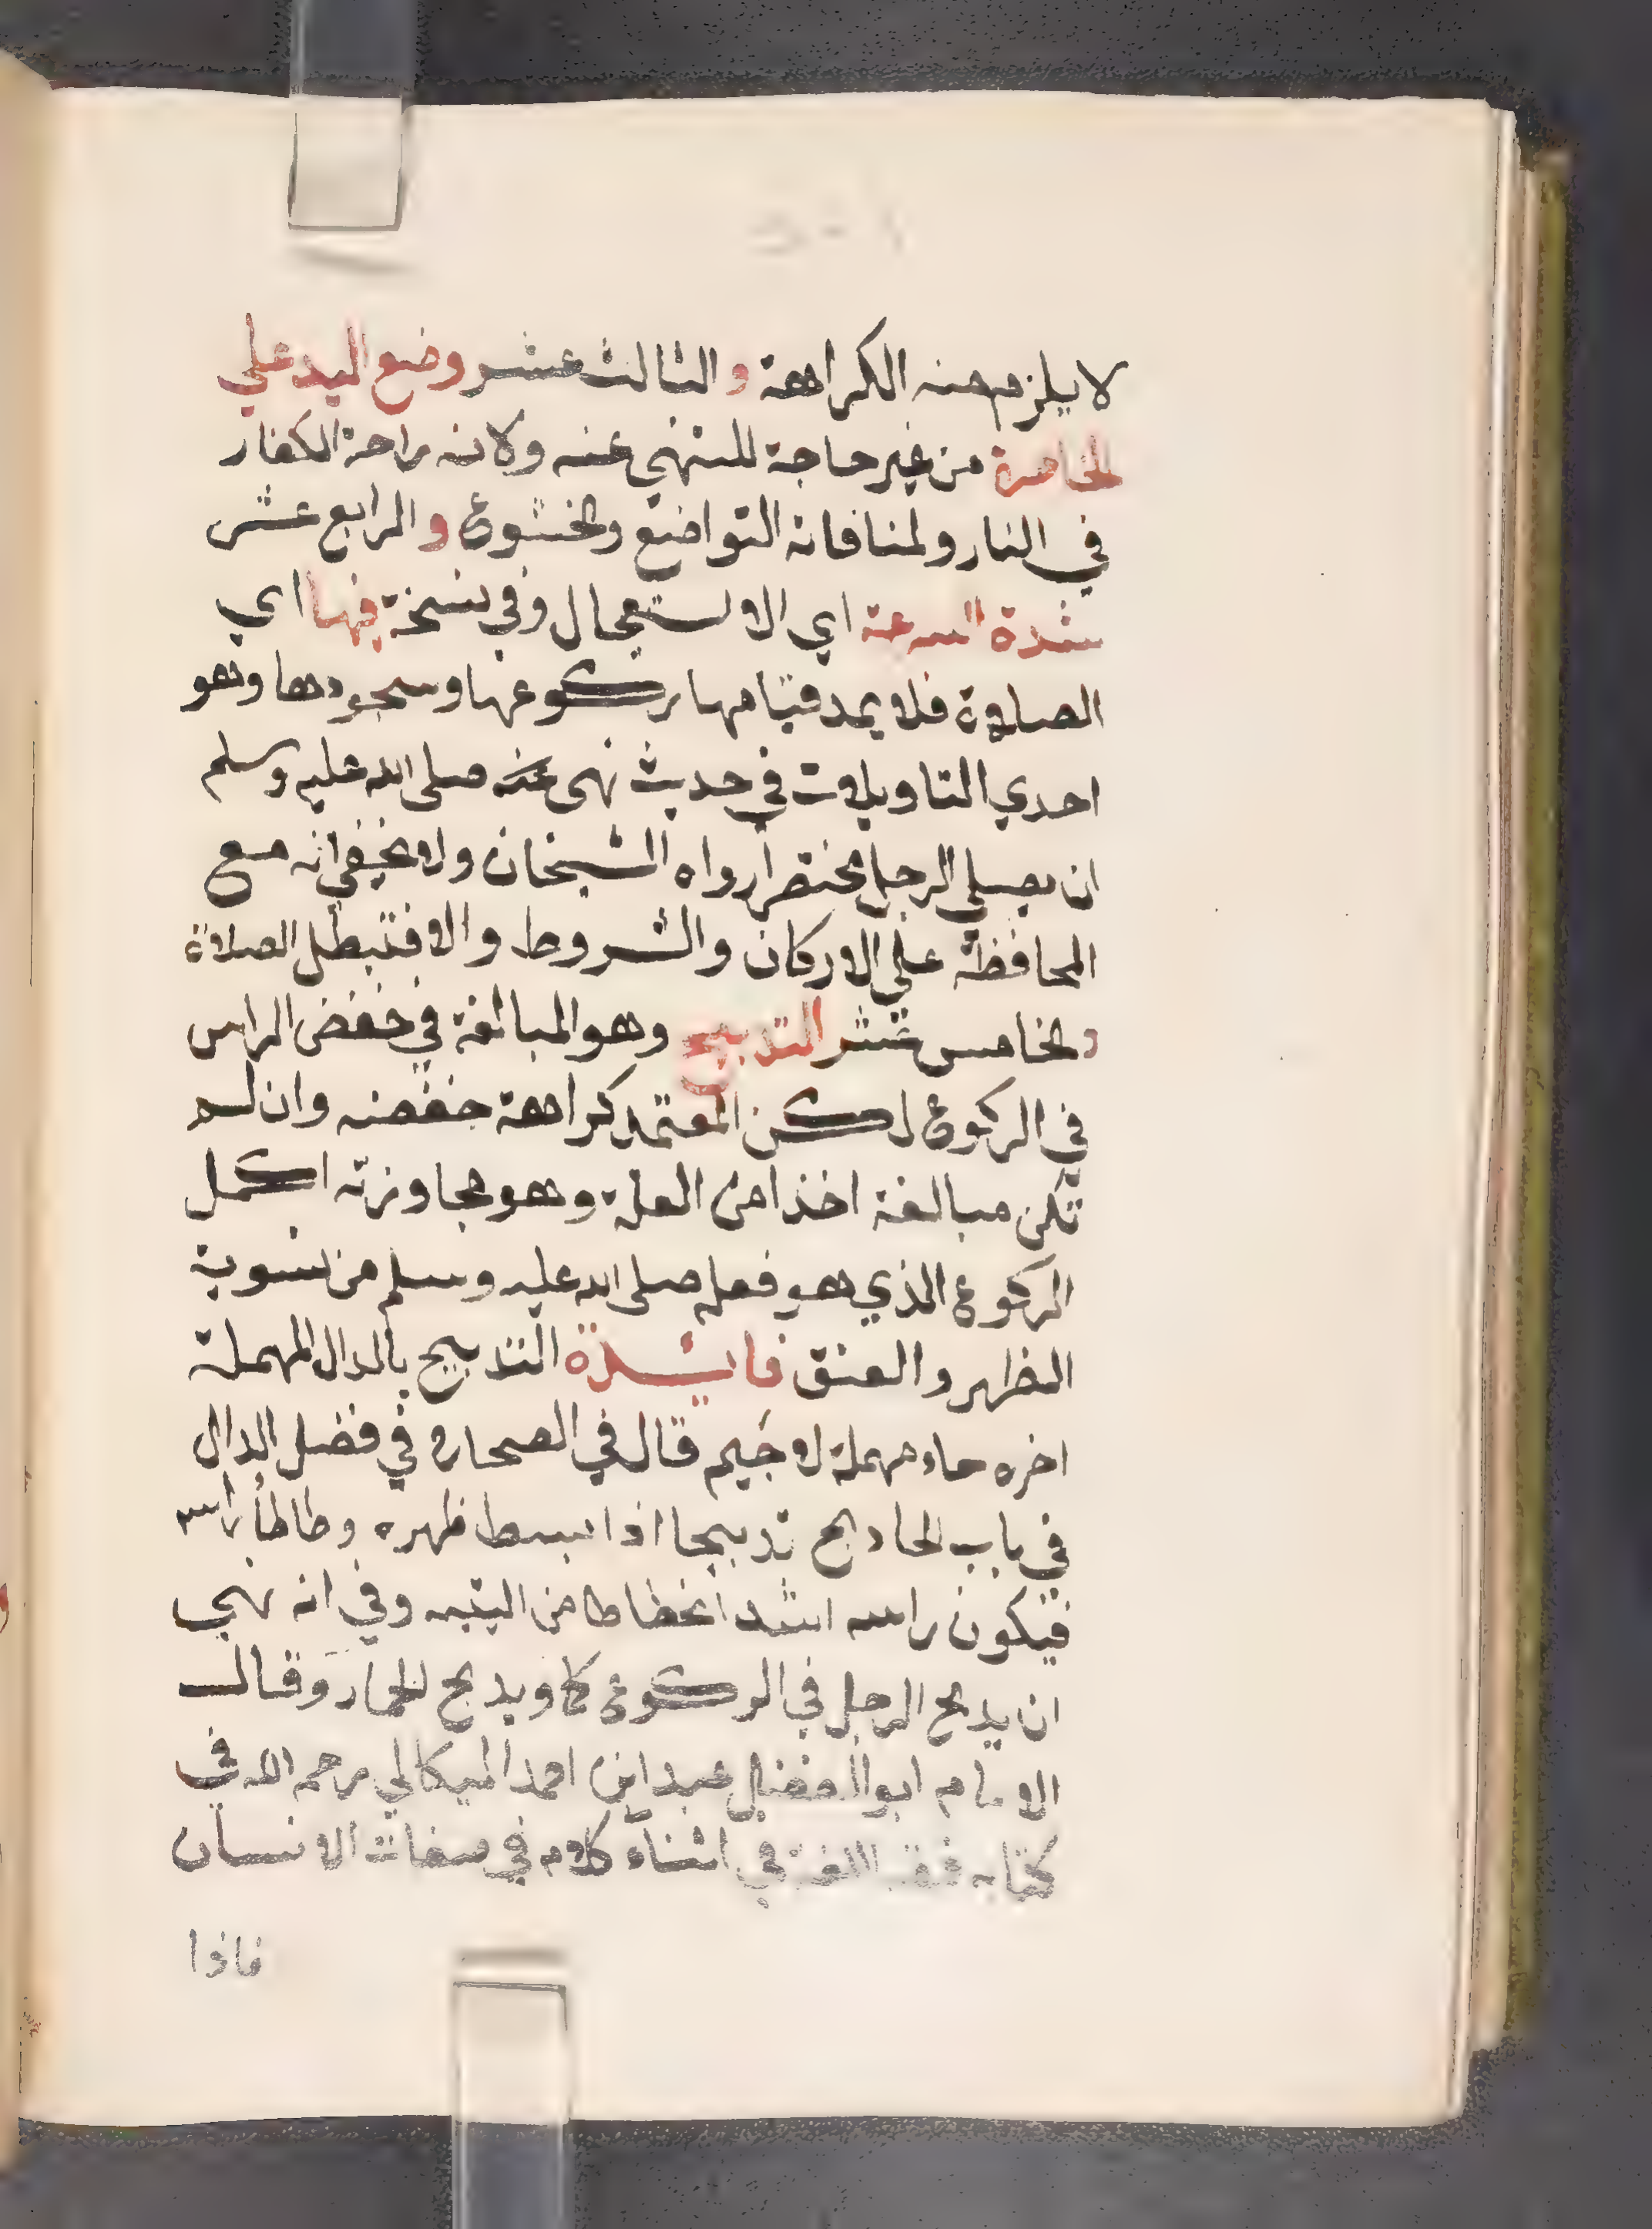 لا يلزم منه الكراهة والثالث عشر وضع اليد علي
الخاصرة من غير حاجة للنهي عنه ولانه راحة الكفار
في النار ولمنافاته التواضع والخشوع والرابع عشر
شدة السرعة اي الاستعجال وفي نسخة فيها اي
الصلاة فلا يمد قيامها ركوعها وسجودها وهو
احدي التاويلات في حديث نهى عنه صلى الله عليه وسلم
ان يصلي الرجل مختصرا رواه الشيخان ولا يخفي انه مع
المحافظة علي الاركان والشروط والا فتبطل الصلاة
والخامس عشر التدبيح وهو المبالغة في خفض الراس
في الركوع لكن المعتمد كراهة خفضه وان لم
تكن مبالغة اخذا من العلة وهو مجاوزته اكمل
الركوع الذي هو فعله صلى الله عليه وسلم من تسوية
الظهر والعنق فايدة التدبيح بالدال المهملة
اخره حاء مهملة لا جيم قال في الصحاح في فصل الدال
في باب الحا دبح تدبيحا اذا بسط ظهره وطاطأ راسه
فيكون راسه اشد انحطاطا من اليتيه وفي انه نهي
ان يدبح الرجل في الركوع كما ويدبح الحمار وقال
الامام ابو الفضل عبد ابن احمد الميكالي رحمه الله في
كتابه فقه اللغة في اثناء كلام في صفات الانسان
فاذا